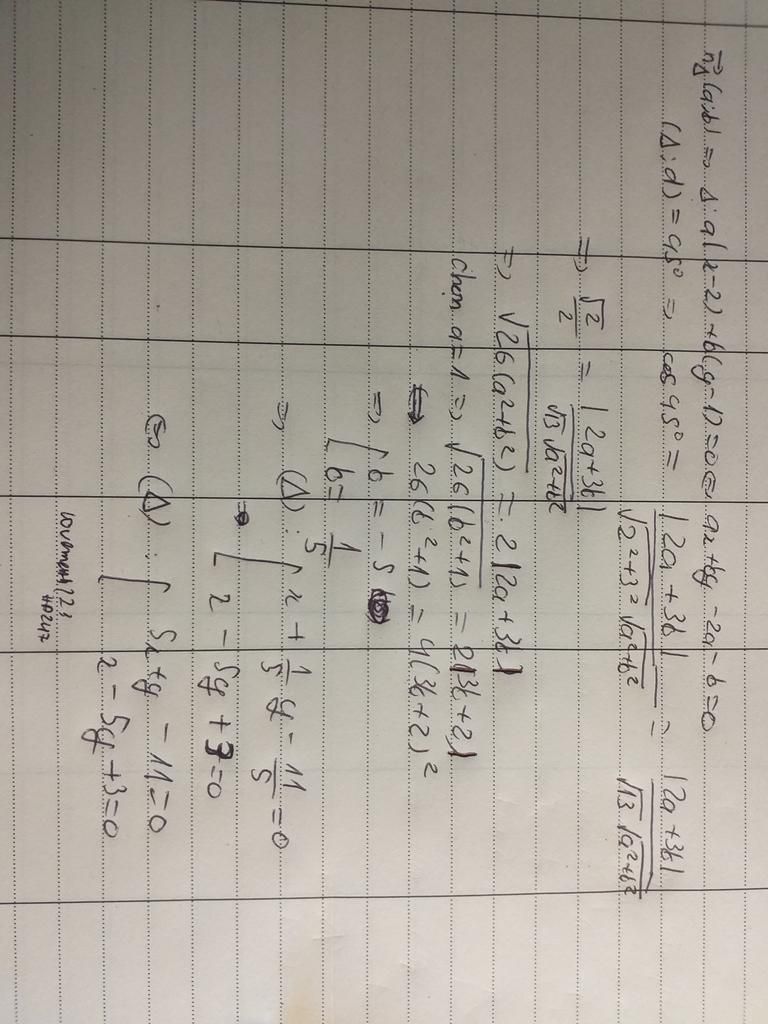 n⃗Δ (a;b) => Δ: a(x-2)+b(y-1)=0 <=> ax+by-2a-b=0
(Δ;d) = 45° => cos 45° = |2a+3b| / √(2²+3²) √(a²+b²) = |2a+3b| / √13 √(a²+b²)
=> √2/2 = |2a+3b| / √13 √(a²+b²)
=> √26(a²+b²) = 2|2a+3b|
chọn a=1 => √26(b²+1) = 2|3b+2|
<=> 26(b²+1) = 4(3b+2)²
=> [ b = -5
b = 1/5
=> (Δ): [ x + 1/5 y - 11/5 = 0
x - 5y + 3 = 0
<=> (Δ): [ 5x + y - 11 = 0
x - 5y + 3 = 0